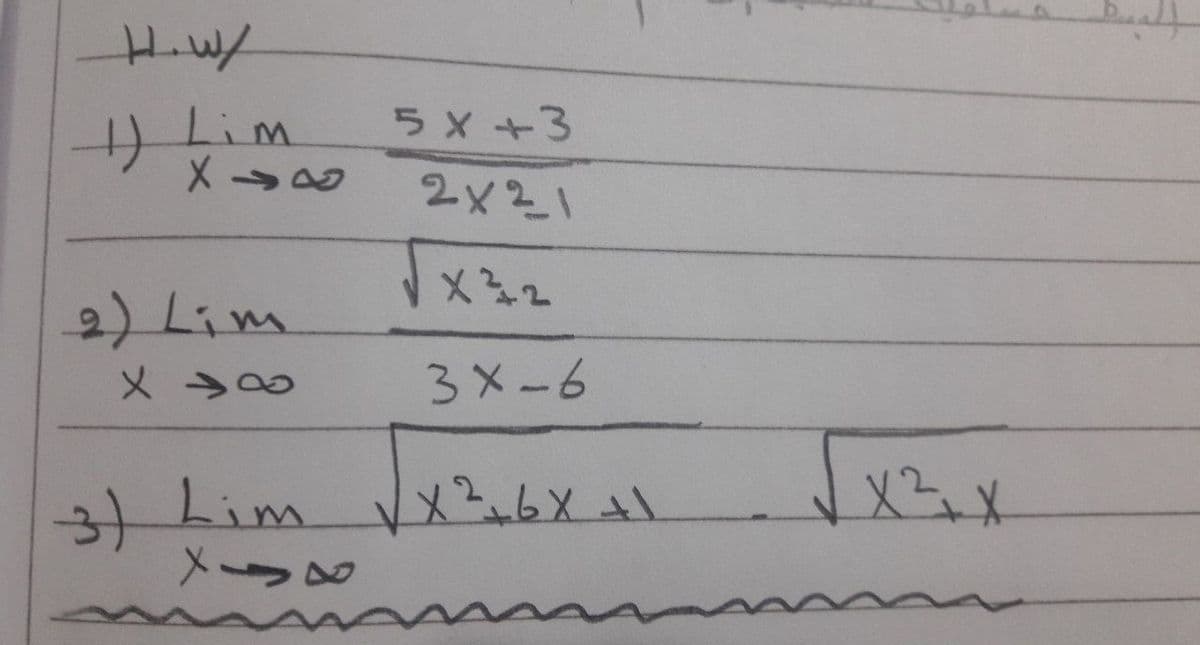 H.W/
1) Lim x→∞ (5x+3)/(2x²-1)
2) Lim x→∞ √(x²+2)/(3x-6)
3) Lim x→∞ √(x²+6x+1) - √(x²+x)